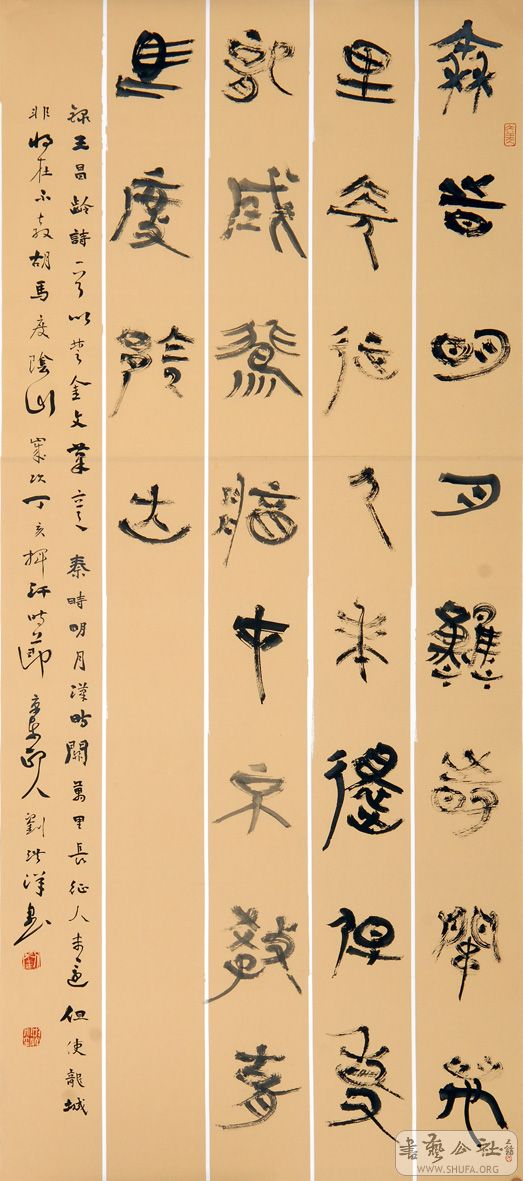 秦時明月漢時關萬
里長征人未還但使
龍城飛將在不教胡
馬度陰山
錄王昌齡詩一首以楚金文筆意 秦時明月漢時關萬里長征人未還但使龍城
非將在不教胡馬度陰山 歲次丁亥揮汗時節 京東人劉洪洋書
書藝公社
WWW.SHUFA.ORG